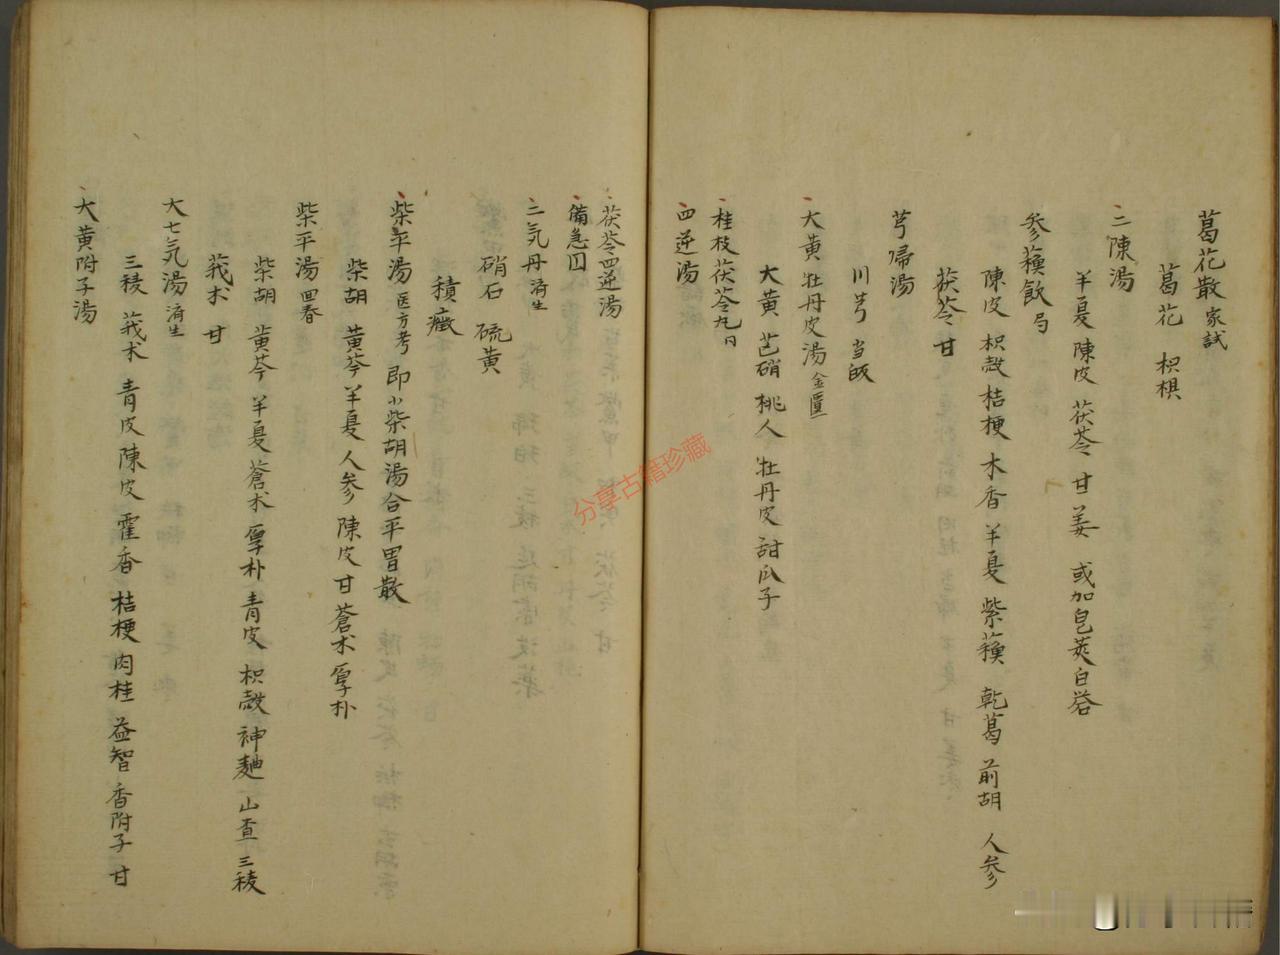 葛花散家試
葛花 枳椇
二陳湯
半夏 陳皮 茯苓 甘 姜 或加皂莢 白芥
參蘓飲局
陳皮 枳殼 桔梗 木香 半夏 紫蘓 乾葛 前胡 人參
茯苓 甘
芎帰湯
川芎 当皈
大黄牡丹皮湯金匱
大黄 芒硝 桃人 牡丹皮 甜瓜子
桂枝茯苓丸日
四逆湯
茯苓四逆湯
備急囗
二気丹済生
硝石 硫黄
積癥
柴平湯医方考即小柴胡湯合平胃散
柴胡 黄芩 半夏 人參 陳皮 甘 蒼朮 厚朴
柴平湯回春
柴胡 黄芩 半夏 蒼朮 厚朴 青皮 枳殼 神麯 山査 三稜
莪朮 甘
大七気湯済生
三稜 莪朮 青皮 陳皮 霍香 桔梗 肉桂 益智 香附子 甘
大黄附子湯
分享古籍珍藏